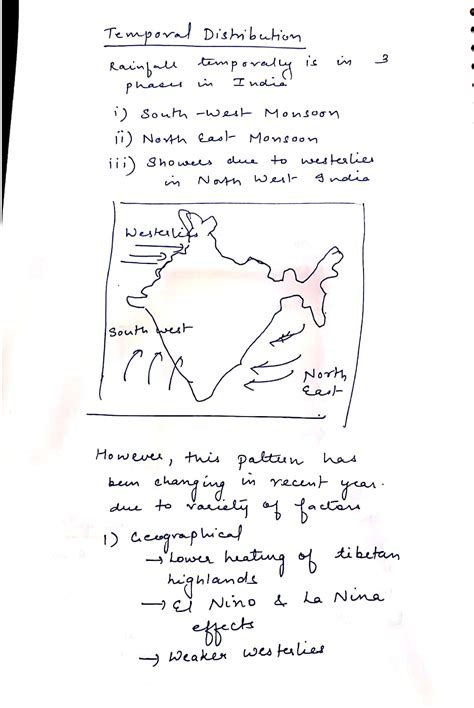 Temporal Distribution
Rainfall temporally is in 3
phases in India
i) South-West Monsoon
ii) North East Monsoon
iii) Showers due to westerlies
in North West India
Westerlies
South west
North
East
However, this pattern has
been changing in recent year.
due to variety of factors
1) Geographical
→ Lower heating of tibetan
highlands
→ El Nino & La Nina
effects
→ Weaker Westerlies